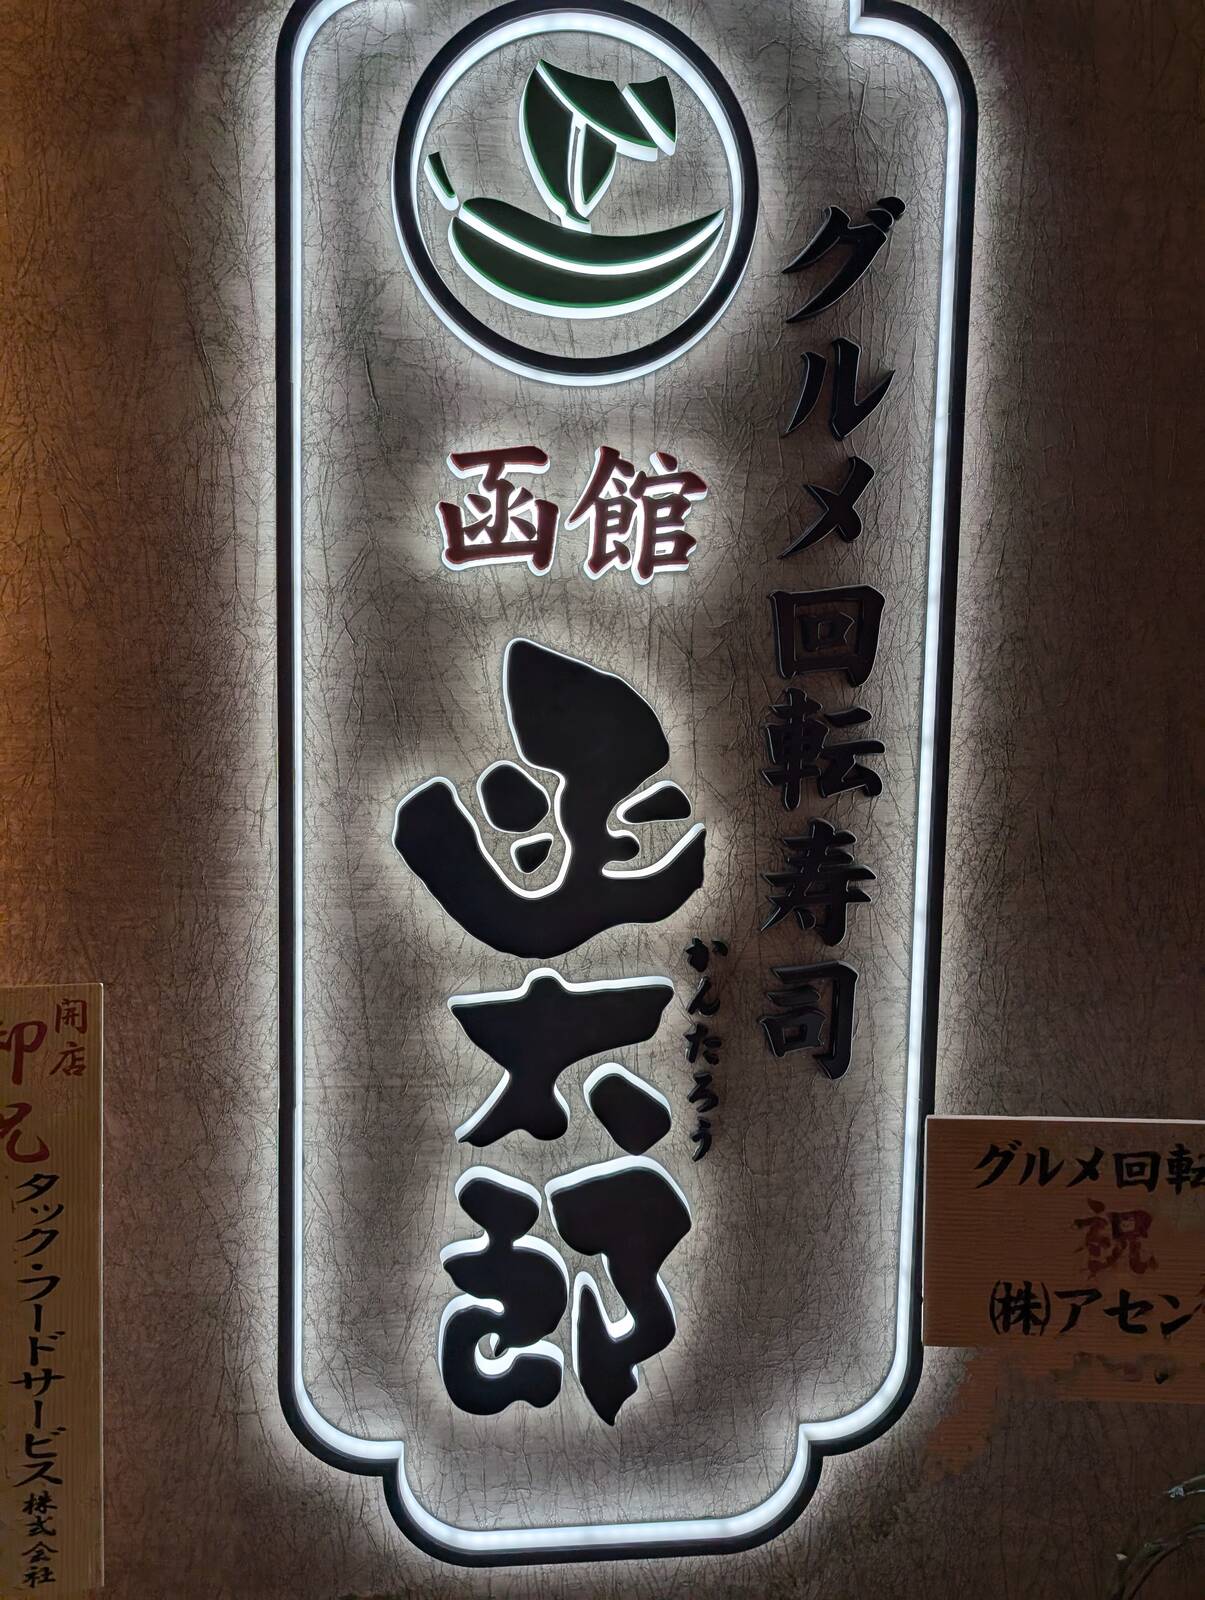 グルメ回転寿司
函館
函太郎
かんたろう
開店
御祝
タック・フードサービス株式会社
グルメ回転
祝
㈱アセン